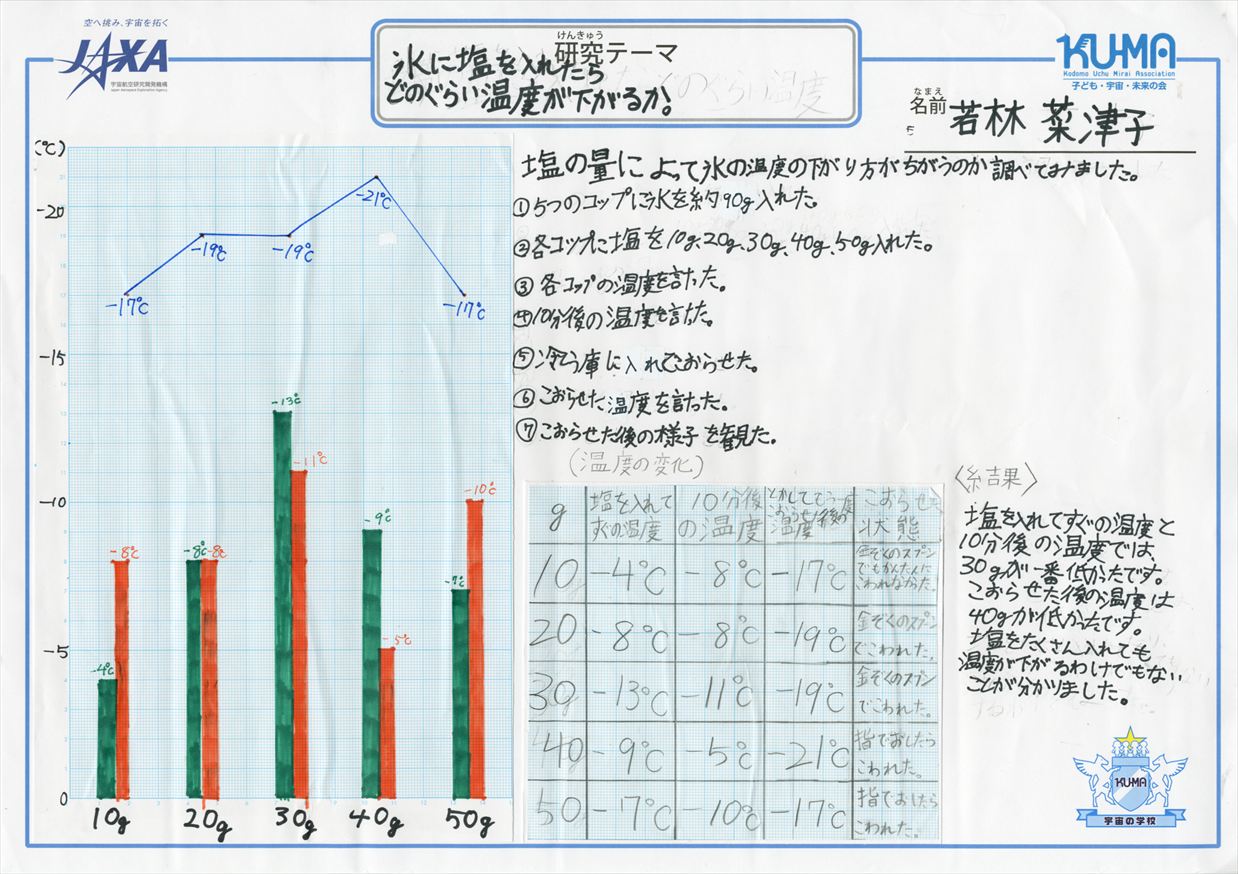 空へ挑み、宇宙を拓く
JAXA
宇宙航空研究開発機構
Japan Aerospace Exploration Agency
けんきゅう
研究テーマ
氷に塩を入れたら
どのぐらい温度が下がるか。
KU-MA
Kodomo Uchu Mirai Association
子ども・宇宙・未来の会
なまえ
名前 若林 菜津子
塩の量によって氷の温度の下がり方がちがうのか調べてみました。
①5つのコップに氷を約90g入れた。
②各コップに塩を10g、20g、30g、40g、50g入れた。
③各コップの温度を計った。
④10分後の温度を計った。
⑤冷とう庫に入れてこおらせた。
⑥こおらせた温度を計った。
⑦こおらせた後の様子を観た。
(℃)
-20
-15
-10
-5
0
-17℃
-19℃
-19℃
-21℃
-17℃
-4℃
-8℃
-8℃
-8℃
-13℃
-11℃
-9℃
-5℃
-7℃
-10℃
10g 20g 30g 40g 50g
(温度の変化)
g 塩を入れてすぐの温度 10分後の温度 こおらせた後の温度 こおらせた状態
10 -4℃ -8℃ -17℃ 金ぞくのスプンでもかんたんにこわれなかった。
20 -8℃ -8℃ -19℃ 金ぞくのスプンでこわれた。
30 -13℃ -11℃ -19℃ 金ぞくのスプンでこわれた。
40 -9℃ -5℃ -21℃ 指でおしたらこわれた。
50 -7℃ -10℃ -17℃ 指でおしたらこわれた。
〈結果〉
塩を入れてすぐの温度と
10分後の温度では、
30gが一番低かったです。
こおらせた後の温度は
40gが低かったです。
塩をたくさん入れても
温度が下がるわけでもない
ことが分かりました。
KU-MA
宇宙の学校